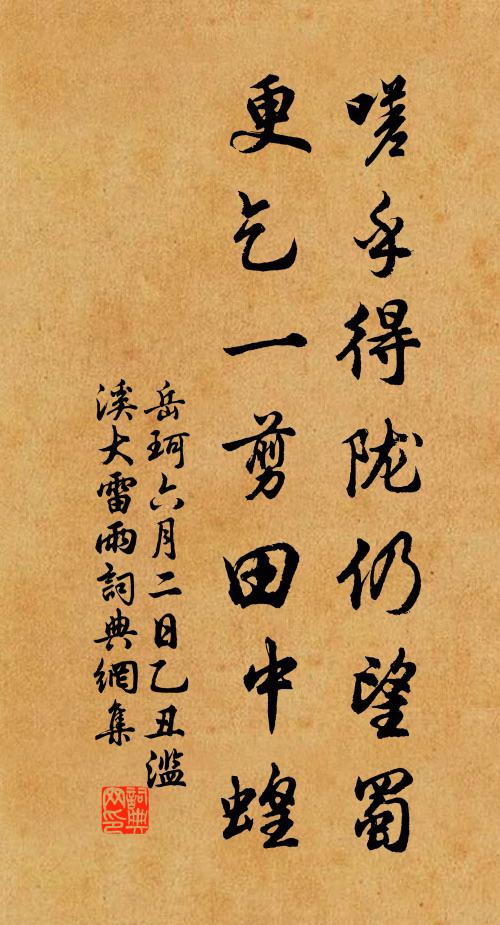 嗟乎得陇仍望蜀
更乞一剪田中蝗
岳珂六月二日乙丑滥
溪大雷雨詞典網集
詞典网印